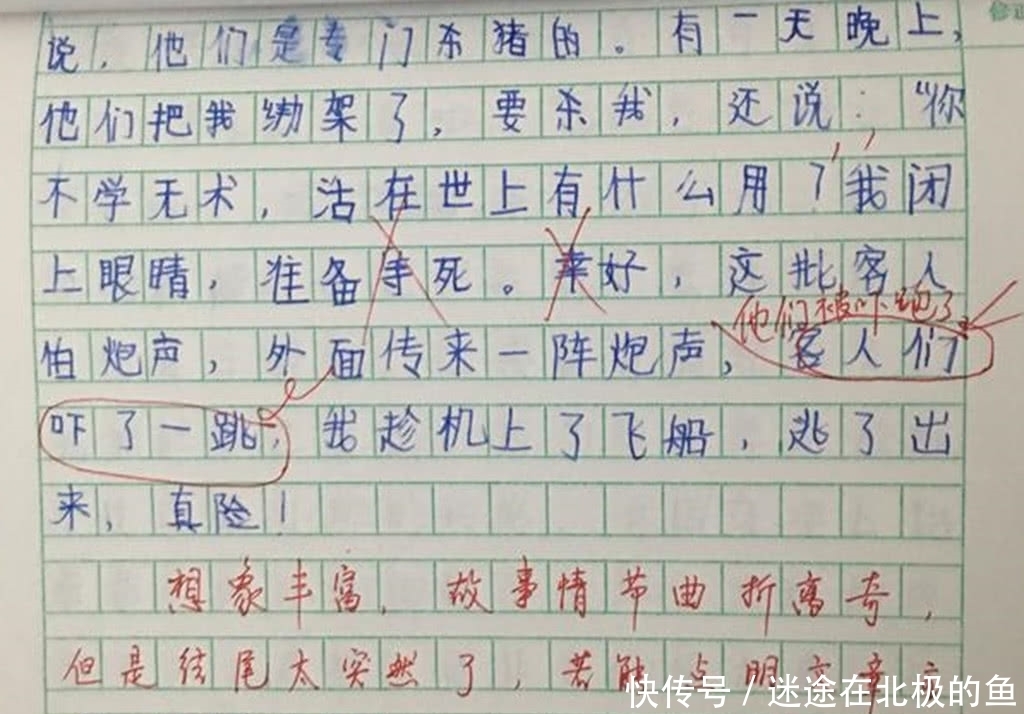 说，他们是专门杀猪的。有一天晚上，
他们把我绑架了，要杀我，还说："你
不学无术，活在世上有什么用？"我闭
上眼睛，准备等死。幸好，这批客人
他们被吓跑了
怕炮声，外面传来一阵炮声，客人们
吓了一跳，我趁机上了飞船，逃了出
来，真险！
想象丰富，故事情节曲折离奇，
但是结尾太突然了，若能点明文章
快传号 / 迷途在北极的鱼